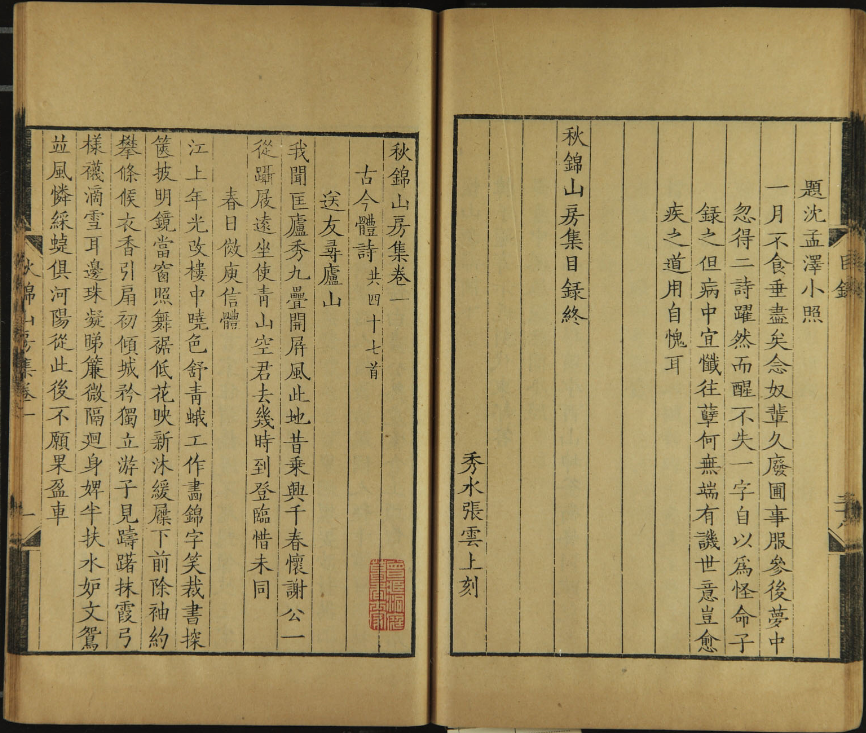 題沈孟澤小照
一月不食垂盡矣念奴輩久廢圃事服參後夢中
忽得二詩躍然而醒不失一字自以爲怪命子
録之但病中宜懺往孽何無端有譏世意豈愈
疾之道用自愧耳
秋錦山房集目録終
秀水張雲上刻
目録
秋錦山房集卷一
古今體詩共四十七首
送友尋廬山
我聞匡廬秀九疊開屏風此地昔乘興千春懷謝公一
從躡屐遠坐使青山空君去幾時到登臨惜未同
春日倣庾信體
江上年光改樓中曉色舒青蛾工作畵錦字笑裁書探
篋披明鏡當窗照舞裾低花映新沐緩屧下前除袖約
攀條候衣香引扇初傾城矜獨立游子見躊躇抹霞弓
樣襪滴雪耳邊珠凝睇簾微隔迴身婢半扶水妒文鴛
並風憐綵蜨俱河陽從此後不願果盈車
秋錦山房集卷一
一